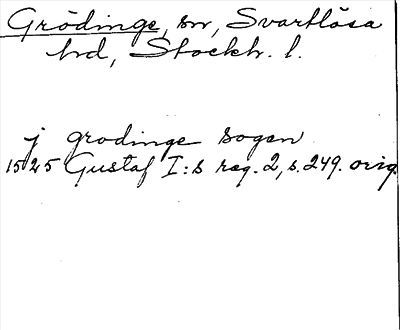 Grödinge, sn, Svartlösa
hd, Stockh. l.
j grodinge sogen
1525 Gustaf I:s reg. 2, s. 249. orig.